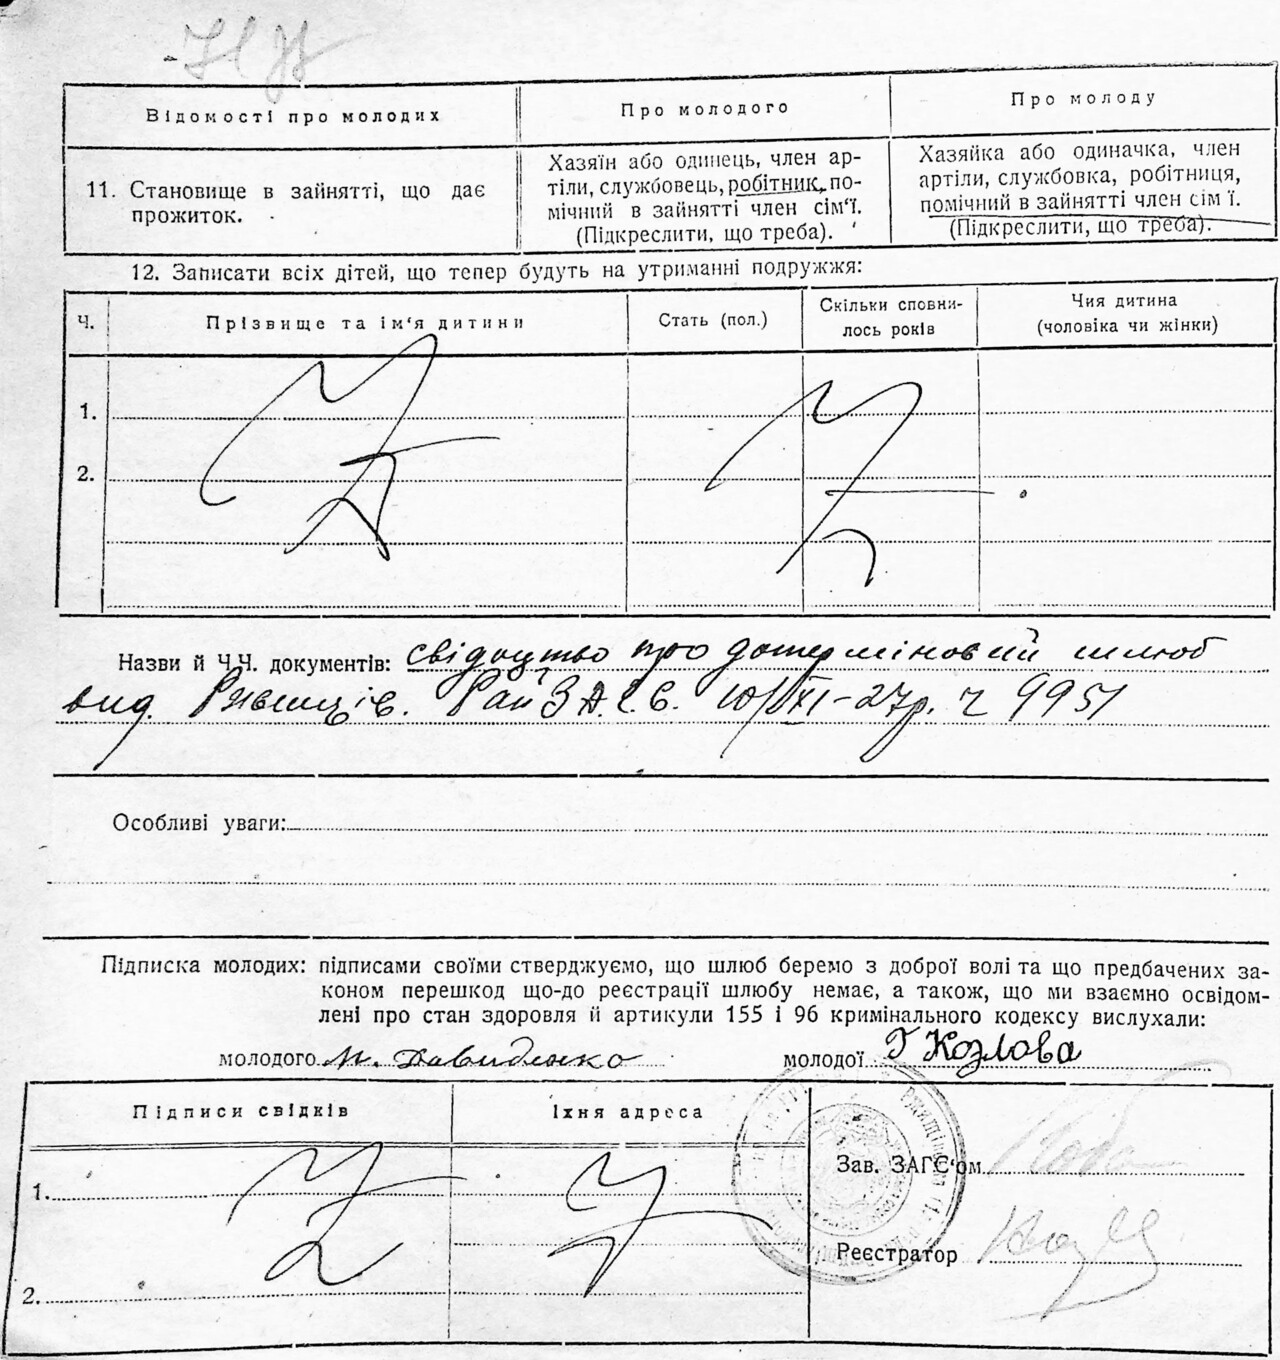 Відомості про молодих
Про молодого
Про молоду
11. Становище в зайнятті, що дає
прожиток.
Хазяїн або одинець, член ар-
тіли, службовець, робітник, по-
мічний в зайнятті член сім‘ї.
(Підкреслити, що треба).
Хазяйка або одиначка, член
артіли, службовка, робітниця,
помічний в зайнятті член сім ї.
(Підкреслити, що треба).
12. Записати всіх дітей, що тепер будуть на утриманні подружжя:
Ч.
Прізвище та ім‘я дитини
Стать (пол.)
Скільки сповни-
лось років
Чия дитина
(чоловіка чи жінки)
1.
2.
Назви й Ч.Ч. документів: свідоцтво про дотерміновий шлюб
вид. Рай З.А.Г.С. 10/XI-27р. ч 9951
Особливі уваги:
Підписка молодих: підписами своїми стверджуємо, що шлюб беремо з доброї волі та що предбачених за-
коном перешкод що-до реєстрації шлюбу немає, а також, що ми взаємно освідом-
лені про стан здоровля й артикули 155 і 96 кримінального кодексу вислухали:
молодого М. Давиденко молодої Г Козлова
Підписи свідків
Їхня адреса
1.
2.
Зав. ЗАГС‘ом
Реєстратор